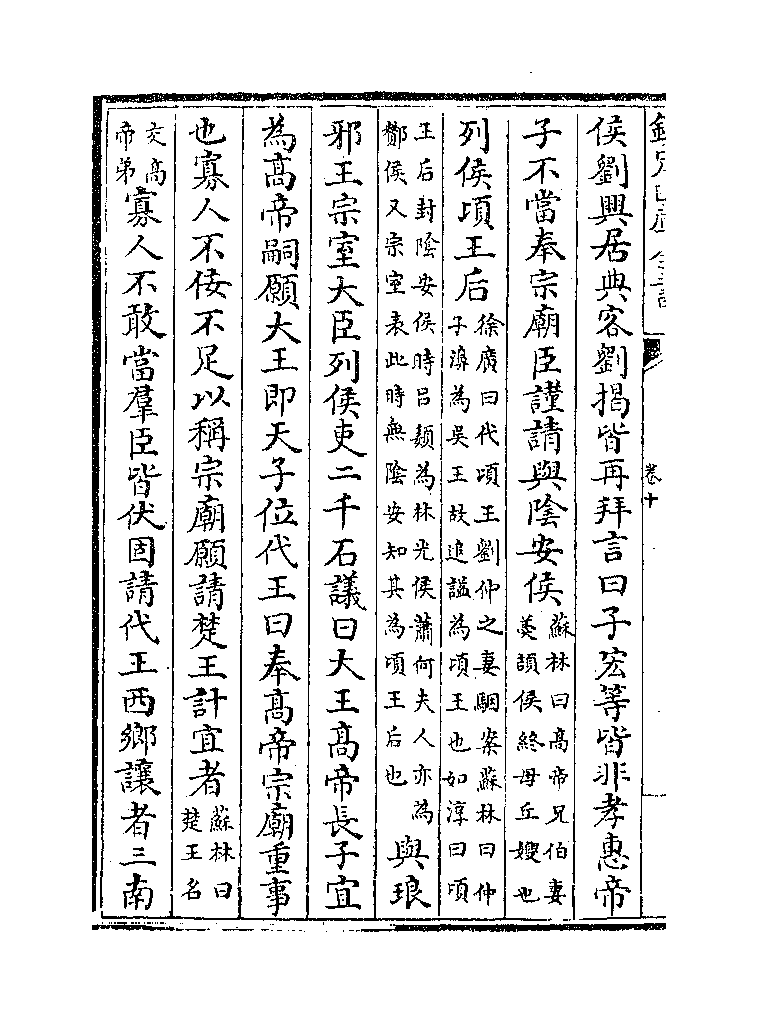 卷十
侯劉興居典客劉揭皆再拜言曰子宏等皆非孝惠帝
子不當奉宗廟臣謹請與陰安侯蘇林曰高帝兄伯妻
羮頡侯終母丘嫂也
列侯頃王后徐廣曰代頃王劉仲之妻駰案蘇林曰仲
子濞為吳王故追諡為頃王也如淳曰頃
王后封陰安侯時吕頦為林光侯蕭何夫人亦為
酇侯又宗室表此時無陰安知其為頃王后也與琅
邪王宗室大臣列侯吏二千石議曰大王高帝長子宜
為高帝嗣願大王即天子位代王曰奉高帝宗廟重事
也寡人不佞不足以稱宗廟願請楚王計宜者蘇林曰
楚王名
交高
帝弟寡人不敢當羣臣皆伏固請代王西鄉讓者三南